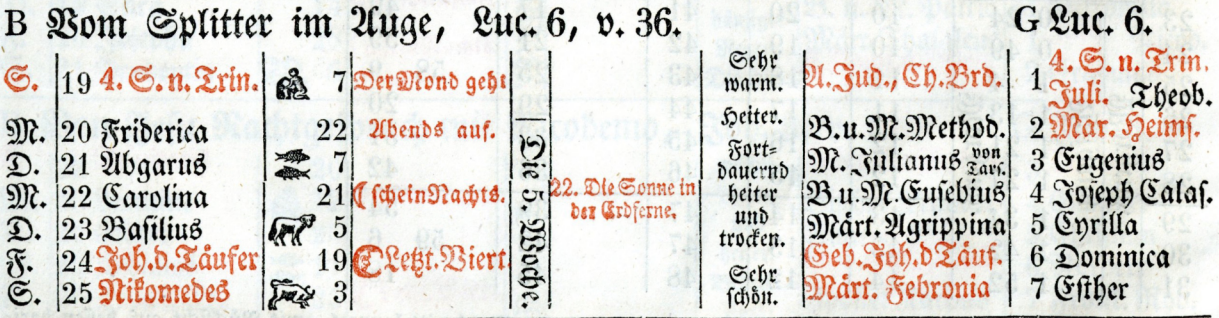 B Vom Splitter im Auge, Luc. 6, v. 36. G Luc. 6.
S. 19 4. S. n. Trin. 7 Der Mond geht Sehr warm. A. Jud., Ch. Brd. 1 4. S. n. Trin. Juli. Theob.
M. 20 Friderica 22 Abends auf. Heiter. B. u. M. Method. 2 Mar. Heims.
D. 21 Abgarus 7 Die 5. Woche. Fort-dauernd M. Julianus von Tars. 3 Eugenius
M. 22 Carolina 21 ☾ schein Nachts. 22. Die Sonne in der Erdferne. heiter B. u. M. Eusebius 4 Joseph Calas.
D. 23 Basilius 5 und trocken. Märt. Agrippina 5 Cyrilla
F. 24 Joh. d. Täufer 19 ☾ Letzt. Viert. Geb. Joh. d Täuf. 6 Dominica
S. 25 Nikomedes 3 Sehr schön. Märt. Febronia 7 Esther